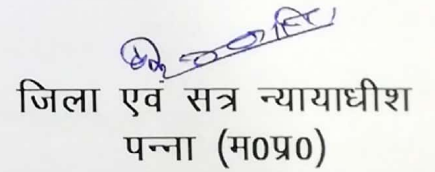 जिला एवं सत्र न्यायाधीश
पन्ना (म0प्र0)